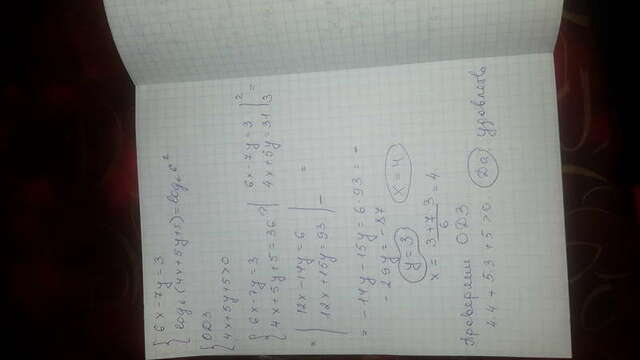 { 6x-7y=3
{ log₆(4x+5y+5)=log₆6²
{ ОДЗ
{ 4x+5y+5>0
{ 6x-7y=3
{ 4x+5y+5=36 | 6x-7y=3 |2
4x+5y=31 |3 =
= | 12x-14y=6
| 12x+15y=93 |- =
= -14y-15y=6-93 = -
-29y=-87
y=3 x=4
x = (3+7·3)/6 = 4.
Проверяем ОДЗ
4·4+5·3+5>0. Да удовлетв